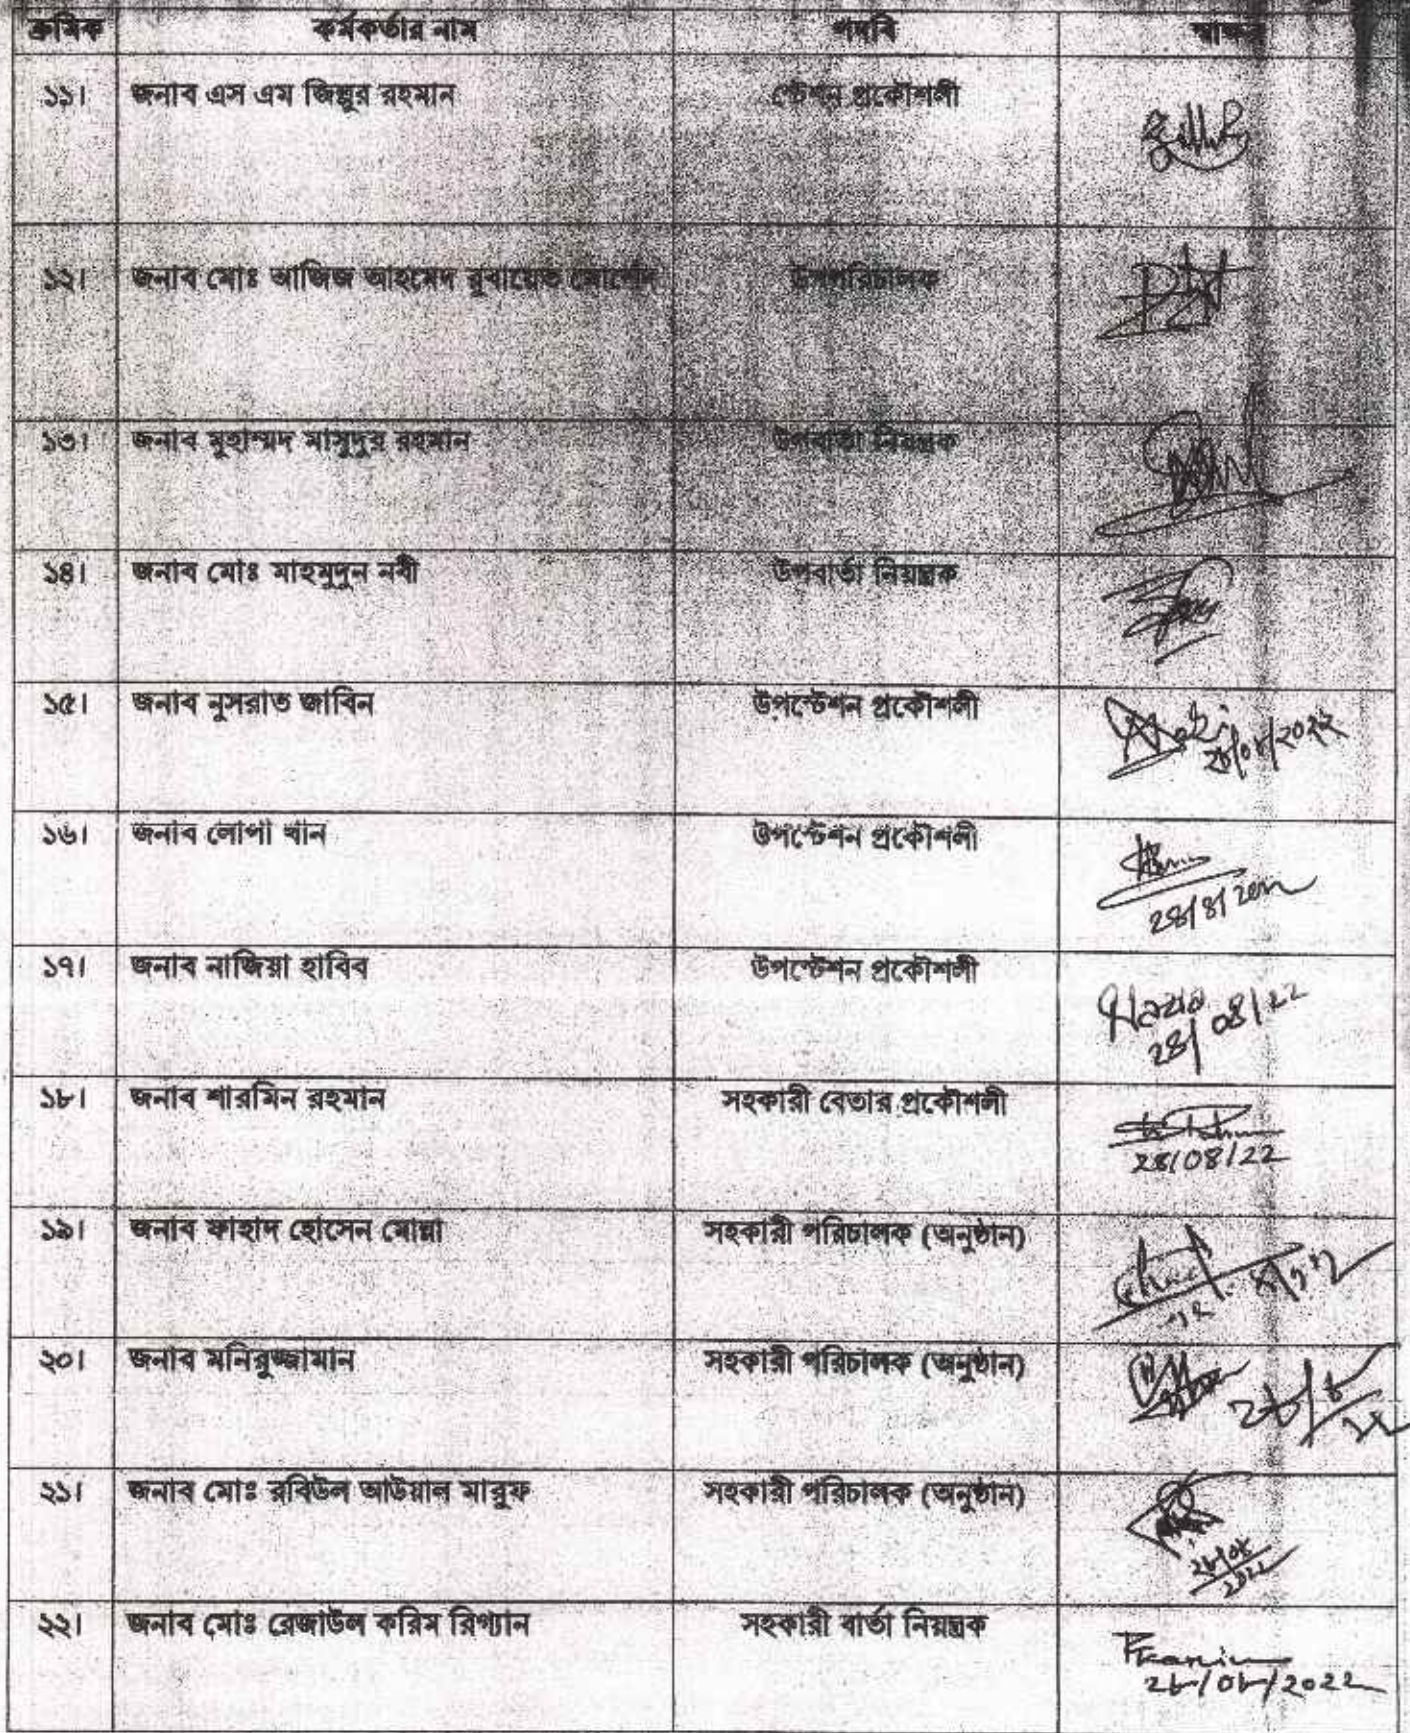 ক্রমিক কর্মকর্তার নাম পদবি স্বাক্ষর
১১। জনাব এস এম জিল্লুর রহমান স্টেশন প্রকৌশলী
১২। জনাব মোঃ আজিজ আহমেদ রুবায়েত উপপরিচালক
১৩। জনাব মুহাম্মদ মাসুদুর রহমান উপবার্তা নিয়ন্ত্রক
১৪। জনাব মোঃ মাহমুদুন নবী উপবার্তা নিয়ন্ত্রক
১৫। জনাব নুসরাত জাবিন উপস্টেশন প্রকৌশলী
২৮/০৮/২০২২
১৬। জনাব লোপা খান উপস্টেশন প্রকৌশলী
28/8/2022
১৭। জনাব নাজিয়া হাবিব উপস্টেশন প্রকৌশলী
Nazia
28/08/22
১৮। জনাব শারমিন রহমান সহকারী বেতার প্রকৌশলী
28/08/22
১৯। জনাব ফাহাদ হোসেন মোল্লা সহকারী পরিচালক (অনুষ্ঠান)
২০। জনাব মনিরুজ্জামান সহকারী পরিচালক (অনুষ্ঠান)
২৮/৮/২২
২১। জনাব মোঃ রবিউল আউয়াল মারুফ সহকারী পরিচালক (অনুষ্ঠান)
২৮/০৮
২০২২
২২। জনাব মোঃ রেজাউল করিম রিগ্যান সহকারী বার্তা নিয়ন্ত্রক
RKarim
২৮/০৮/২০২২